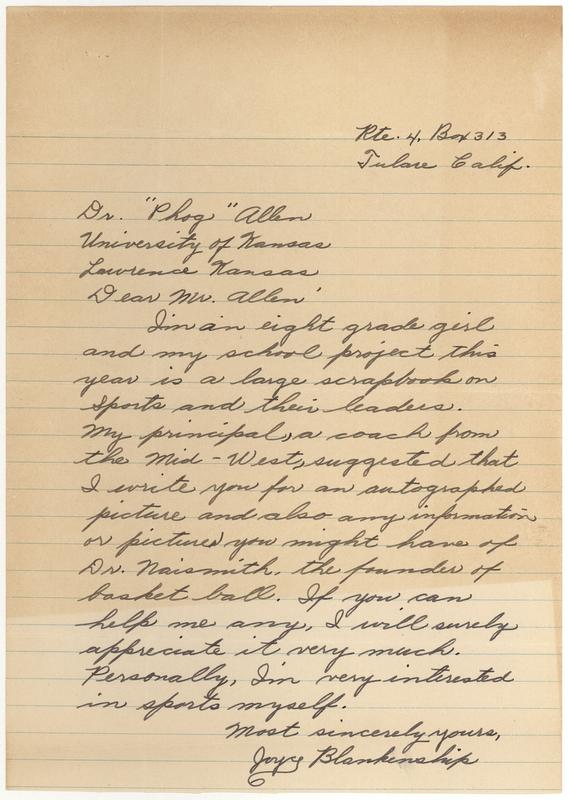 Rte. 4, Box 313
Tulare Calif.
Dr. "Phog" Allen
University of Kansas
Lawrence Kansas
Dear Mr. Allen'
I'm an eight grade girl
and my school project this
year is a large scrapbook on
sports and their leaders.
My principal, a coach from
the Mid-West, suggested that
I write you for an autographed
picture and also any information
or pictures you might have of
Dr. Naismith, the founder of
basket ball. If you can
help me any, I will surely
appreciate it very much.
Personally, I'm very interested
in sports myself.
Most sincerely yours,
Joyce Blankenship